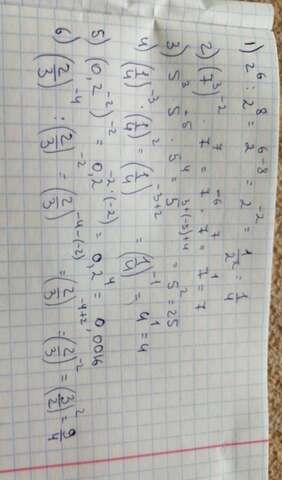 1) 2⁶ : 2⁸ = 2⁶⁻⁸ = 2⁻² = 1/2² = 1/4
2) (7³)⁻² · 7⁷ = 7⁻⁶ · 7⁷ = 7¹ = 7
3) 5³ · 5⁻⁵ · 5⁴ = 5³⁺⁽⁻⁵⁾⁺⁴ = 5² = 25
4) (1/4)⁻³ · (1/4)² = (1/4)⁻³⁺² = (1/4)⁻¹ = 4¹ = 4
5) (0,2⁻²)⁻² = 0,2⁻²·⁽⁻²⁾ = 0,2⁴ = 0,0016
6) (2/3)⁻⁴ : (2/3)⁻² = (2/3)⁻⁴⁻⁽⁻²⁾ = (2/3)⁻⁴⁺² = (2/3)⁻² = (3/2)² = 9/4